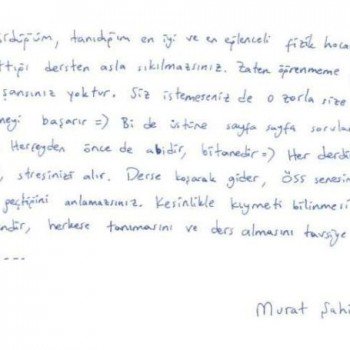 rdüğüm, tanıdığım en iyi ve en eğlenceli fizik hoca
ttığı dersten asla sıkılmazsınız. Zaten öğrenmeme
şansınız yoktur. Siz istemeseniz de o zorla size
meyi başarır =) Bi de üstüne sayfa sayfa sorula
Herşeyden önce de abidir, bitanedir =) Her derdi
, stresinizi alır. Derse koşarak gider, ÖSS senesin
geçtiğini anlamazsınız. Kesinlikle kıymeti bilinmesi
ndir, herkese tanımasını ve ders almasını tavsiye
---
Murat Şahi